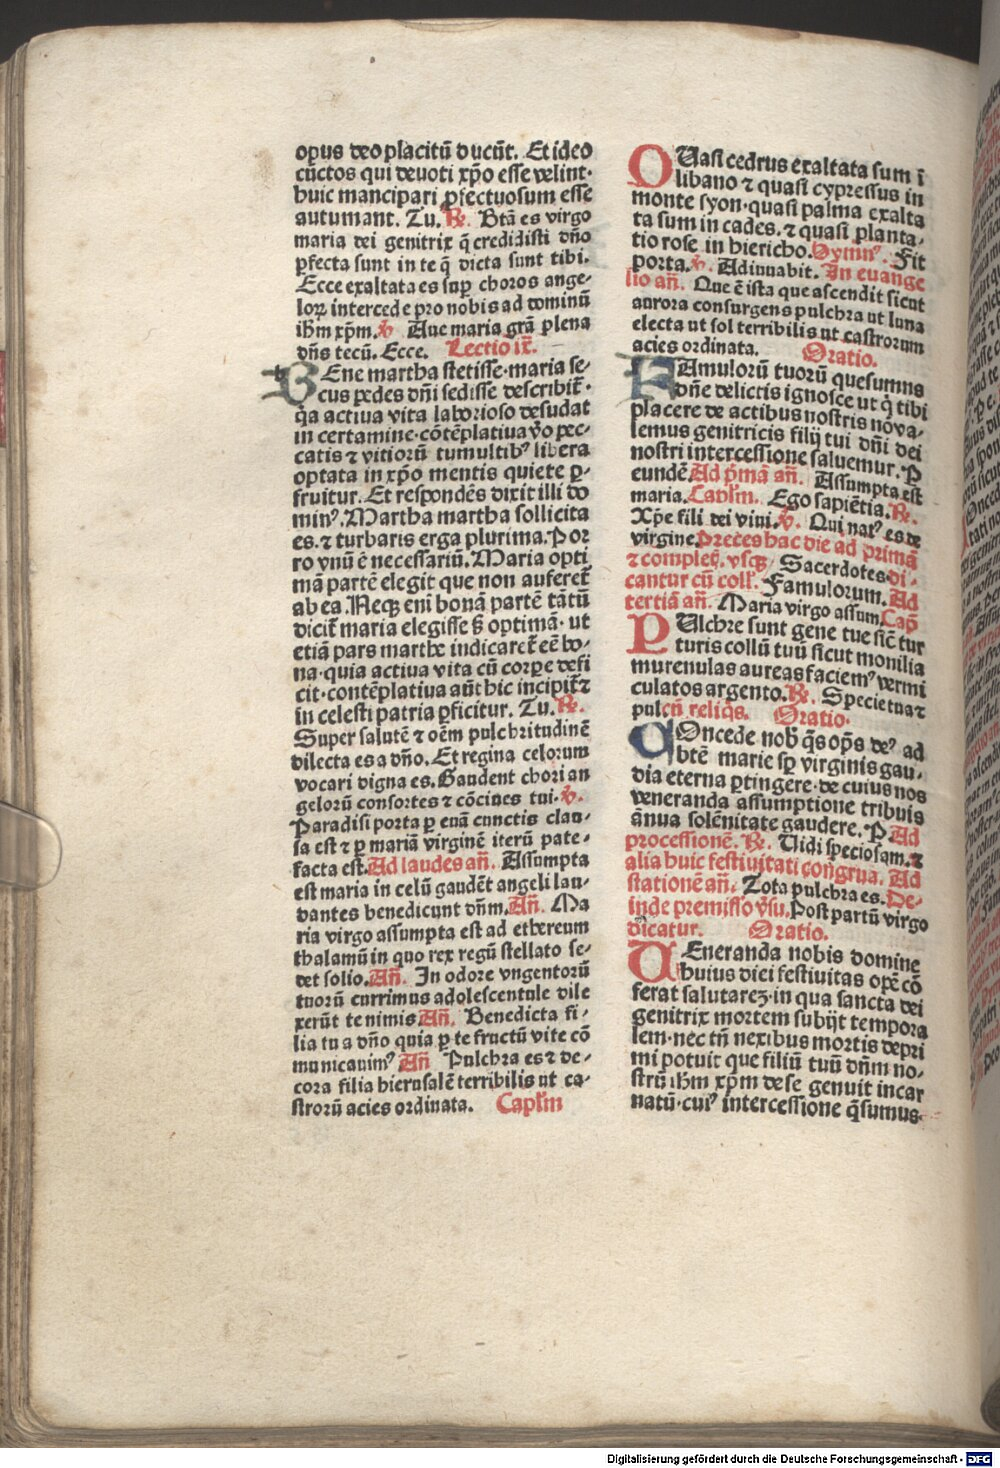 opus deo placitū ducūt. Et ideo
cūctos qui deuoti xp̄o esse velint·
huic mancipari ꝓfectuosum esse
autumant. Tu. R̄. Btā es virgo
maria dei genitrix q̄ credidisti dn̄o
ꝑfecta sunt in te q̄ dicta sunt tibi.
Ecce exaltata es sup̄ choros ange-
loꝝ intercede pro nobis ad dominū
ih̄m xp̄m. v̄. Aue maria grā plena
dn̄s tecū. Ecce. Lectio ix̄.
BEne martha stetisse·maria se-
cus pedes dn̄i sedisse describit̄·
q̄a actiua vita laborioso desudat
in certamine·cōtēplatiua v̄o pec-
catis ⁊ vitiorū tumultibꝰ libera
optata in xp̄o mentis quiete ꝑ-
fruitur. Et respondēs dixit illi do
minꝰ. Martha martha sollicita
es. ⁊ turbaris erga plurima. Por
ro vnū ē necessariū. Maria opti
mā partē elegit que non auferet̄
ab ea. Neqꝫ eni bonā partē tātū
dicit̄ maria elegisse sꝫ optimā· ut
etiā pars marthe indicaret̄ eē bo-
na·quia actiua vita cū corpe defi
cit·contēplatiua aūt hic incipit̄ ⁊
in celesti patria ꝑficitur. Tu. R̄.
Super salutē ⁊ oēm pulchritudinē
dilecta es a dn̄o. Et regina celorum
vocari digna es. Gaudent chori an
gelorū consortes ⁊ cōciues tui. v̄.
Paradisi porta ꝑ euā cunctis clau-
sa est ⁊ ꝑ mariā virginē iterū pate-
facta est. Ad laudes an̄. Assumpta
est maria in celū gaudēt angeli lau-
dantes benedicunt dn̄m. An̄. Ma
ria virgo assumpta est ad ethereum
thalamū in quo rex regū stellato se-
det solio. An̄. In odore vngentorū
tuorū currimus adolescentule dile
xerūt te nimis An̄. Benedicta fi-
lia tu a dn̄o quia ꝑ te fructū vite cō
municauimꝰ An̄ Pulchra es ⁊ de-
cora filia hierusalē terribilis ut ca-
strorū acies ordinata. Capl̄m
QUasi cedrus exaltata sum ī
libano ⁊ quasi cypressus in
monte syon·quasi palma exalta
ta sum in cades. ⁊ quasi planta-
tio rose in hiericho. Hymnꝰ. Fit
porta. v̄. Adiuuabit. In euange
lio an̄. Que ē ista que ascendit sicut
aurora consurgens pulchra ut luna
electa ut sol terribilis ut castrorum
acies ordinata. Oratio.
FAmulorū tuorū quesumus
dn̄e delictis ignosce ut q̄ tibi
placere de actibus nostris nō va-
lemus genitricis filij tui dn̄i dei
nostri intercessione saluemur. P
eundē. Ad p̄mā an̄. Assumpta est
maria. Capl̄m. Ego sapiētia. R̄.
Xp̄e fili dei viui. v̄. Qui natꝰ es de
virgine. Preces hac die ad primā
⁊ completꝭ. vsqꝫ Sacerdotes. di-
cantur cū coll̄. Famulorum. Ad
tertiā an̄. Maria virgo assum. Cap̄
PUlchre sunt gene tue sic̄ tur
turis collū tuū sicut monilia
murenulas aureas faciemꝰ vermi
culatos argento. R̄. Specie tua ⁊
pul cū reliq̄s. Oratio.
COncede nob̄ q̄s op̄s deꝰ ad
btē marie sp̄ virginis gau-
dia eterna ꝑtingere·de cuius nos
veneranda assumptione tribuis
ānua solēnitate gaudere. P Ad
processionē. R̄. Uidi speciosam. ⁊
alia huic festiuitati congrua. Ad
stationē an̄. Tota pulchra es. De-
inde premisso v̄su. Post partū virgo
dicatur. Oratio.
UEneranda nobis domine
huius diei festiuitas opē cō
ferat salutarē·in qua sancta dei
genitrix mortem subijt tempora
lem·nec tn̄ nexibus mortis depri
mi potuit que filiū tuū dn̄m no-
strū ih̄m xp̄m de se genuit incar
natū·cuiꝰ intercessione q̄sumus·
Digitalisierung gefördert durch die Deutsche Forschungsgemeinschaft - DFG